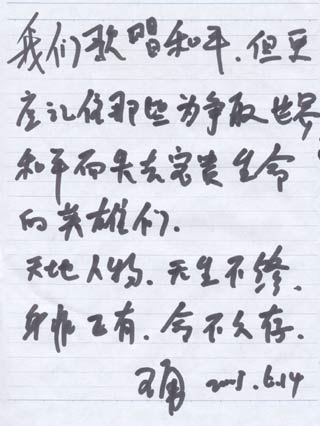 我们歌唱和平.但更
应记住那些为争取世界
和平而失去宝贵生命
的英雄们.
天地人物.无生不终.
身非己有.命不久存.
6.14